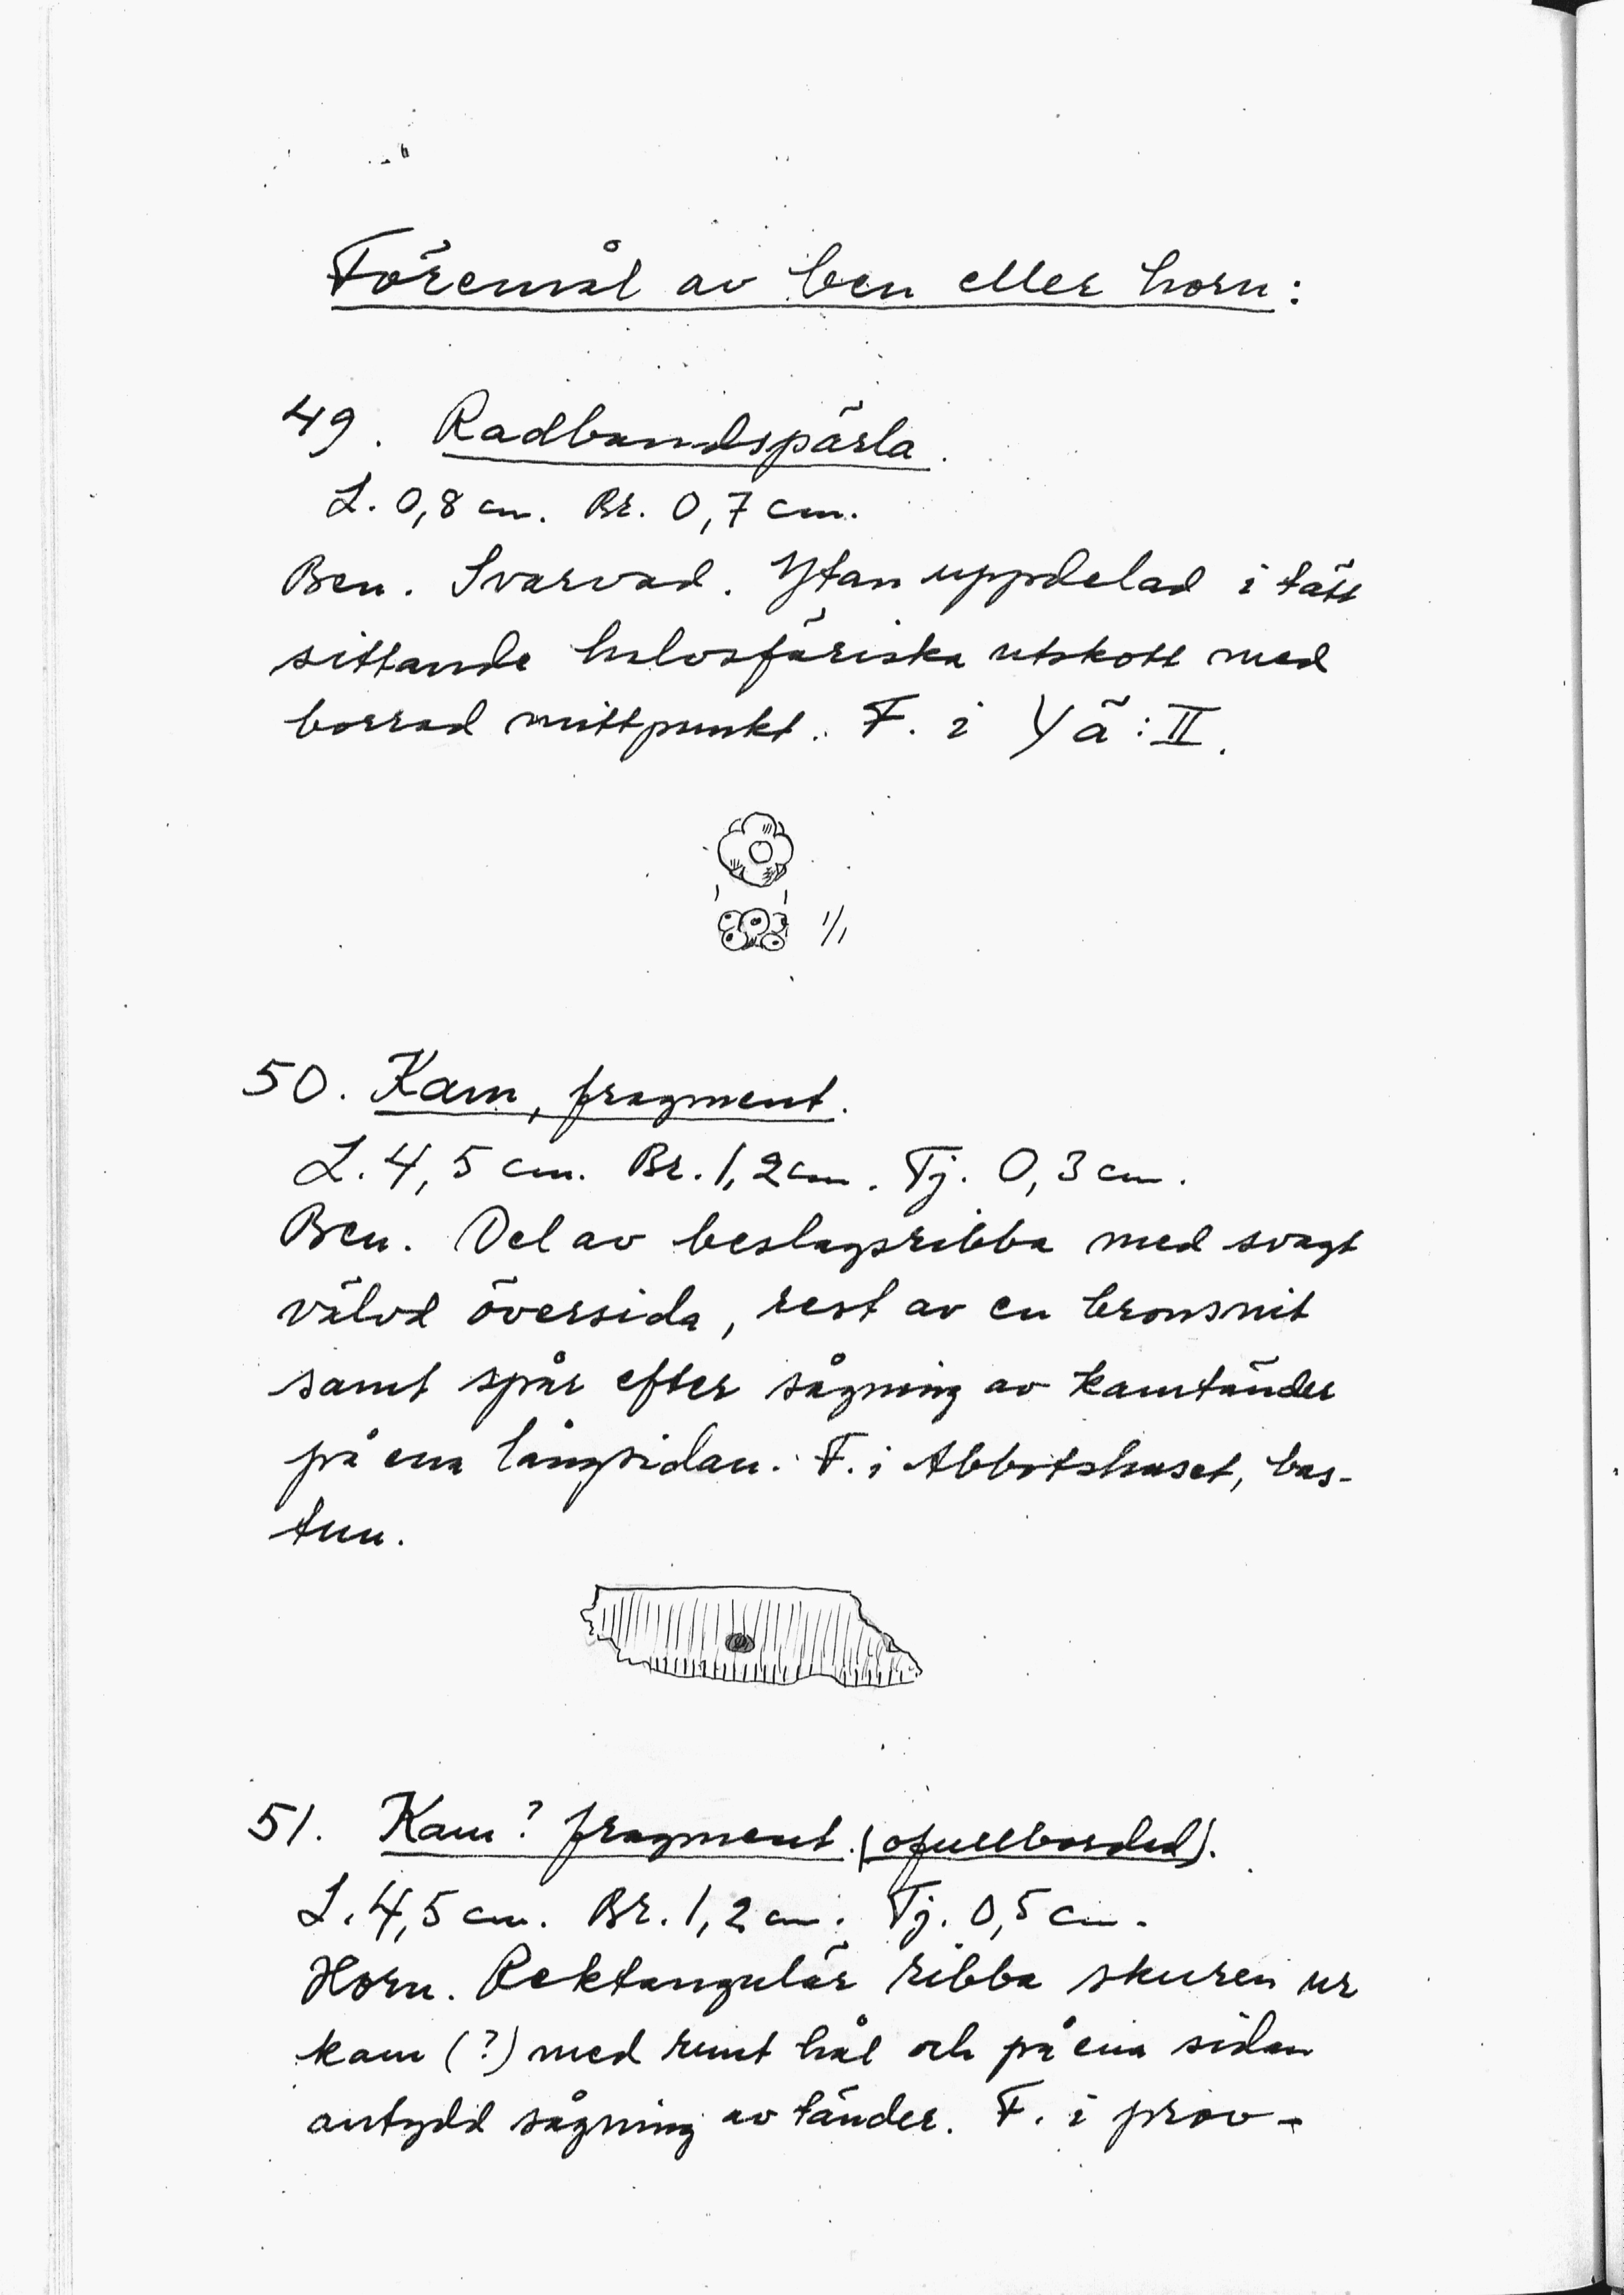 Föremål av ben eller horn:
49. Radbandspärla.
L. 0,8 cm. Br. 0,7 cm.
Ben. Svarvad. Ytan uppdelad i tätt
sittande halvsfäriska utskott med
borrad mittpunkt. F. i Yä: II.
1/1
50. Kam, fragment.
L. 4,5 cm. Br. 1,2 cm. Tj. 0,3 cm.
Ben. Del av beslagsribba med svagt
välvd översida, rest av en bronsnit
samt spår efter sågning av kamtänder
på ena långsidan. F. i Abbotshuset, bas-
tun.
51. Kam? fragment. (ofullbordad).
L. 4,5 cm. Br. 1,2 cm. Tj. 0,5 cm.
Horn. Rektangulär ribba skuren ur
kam (?) med runt hål och på ena sidan
antydd sågning av tänder. F. i prov-